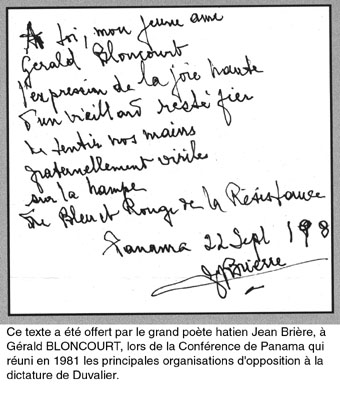 A toi, mon jeune ami
Gerald Bloncourt
l'expression de la joie haute
d'un vieillard resté fier
de sentir nos mains
fraternellement viriles
sur la hampe
du Bleu et Rouge de la Résistance
Panama 22 Sept 198
JBrierre
Ce texte a été offert par le grand poète hatien Jean Brière, à
Gérald BLONCOURT, lors de la Conférence de Panama qui
réuni en 1981 les principales organisations d'opposition à la
dictature de Duvalier.